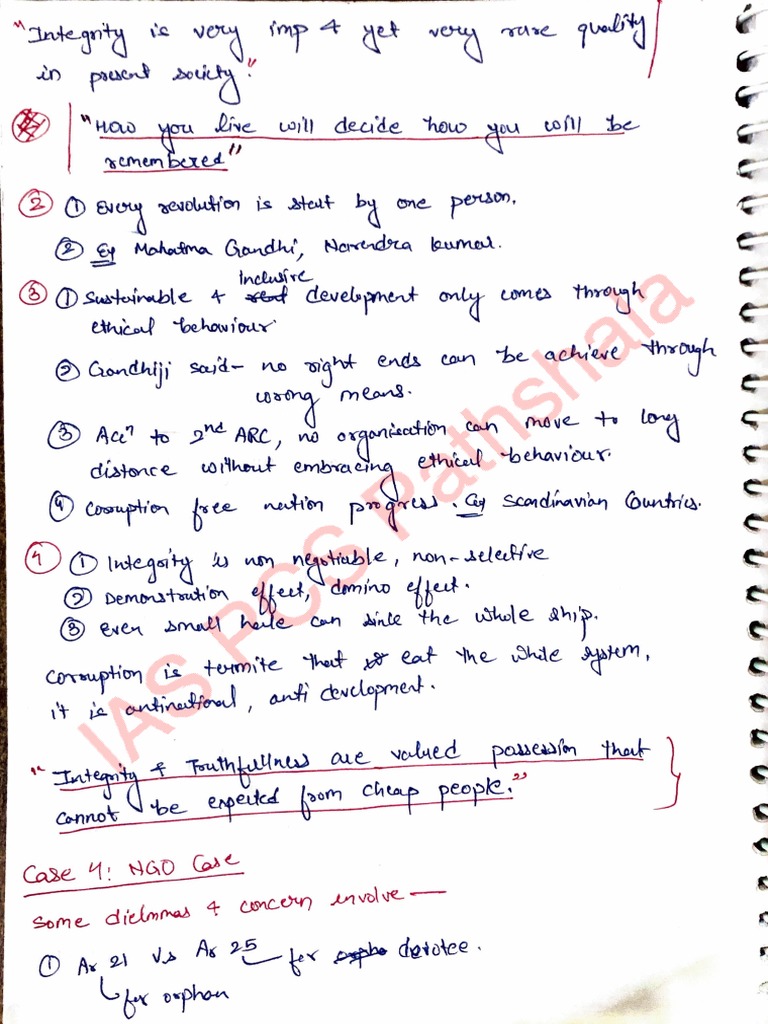 "Integrity is very imp & yet very rare quality
in present society."
"How you live will decide how you will be
remembered"
② ① Every revolution is start by one person.
② Eg Mahatma Gandhi, Narendra kumar.
③ ① Sustainable & inclusive development only comes through
ethical behaviour.
② Gandhiji said - no right ends can be achieve through
wrong means.
③ Accⁿ to 2nd ARC, no organisation can move to long
distance without embracing ethical behaviour.
④ Corruption free nation progress. Eg Scandinavian Countries.
4 ① Integrity is non negotiable, non-selective
② Demonstration effect, domino effect.
③ Even small hole can sink the whole ship.
Corruption is termite that eat the while system,
it is antinational, anti development.
"Integrity & Truthfullness are valued possession that
cannot be expected from cheap people."
Case 4: NGO Case
Some dielmmas & concern involve —
① Ar 21 Vs Ar 25 for devotee.
for orphan
IAS PCS Pathshala